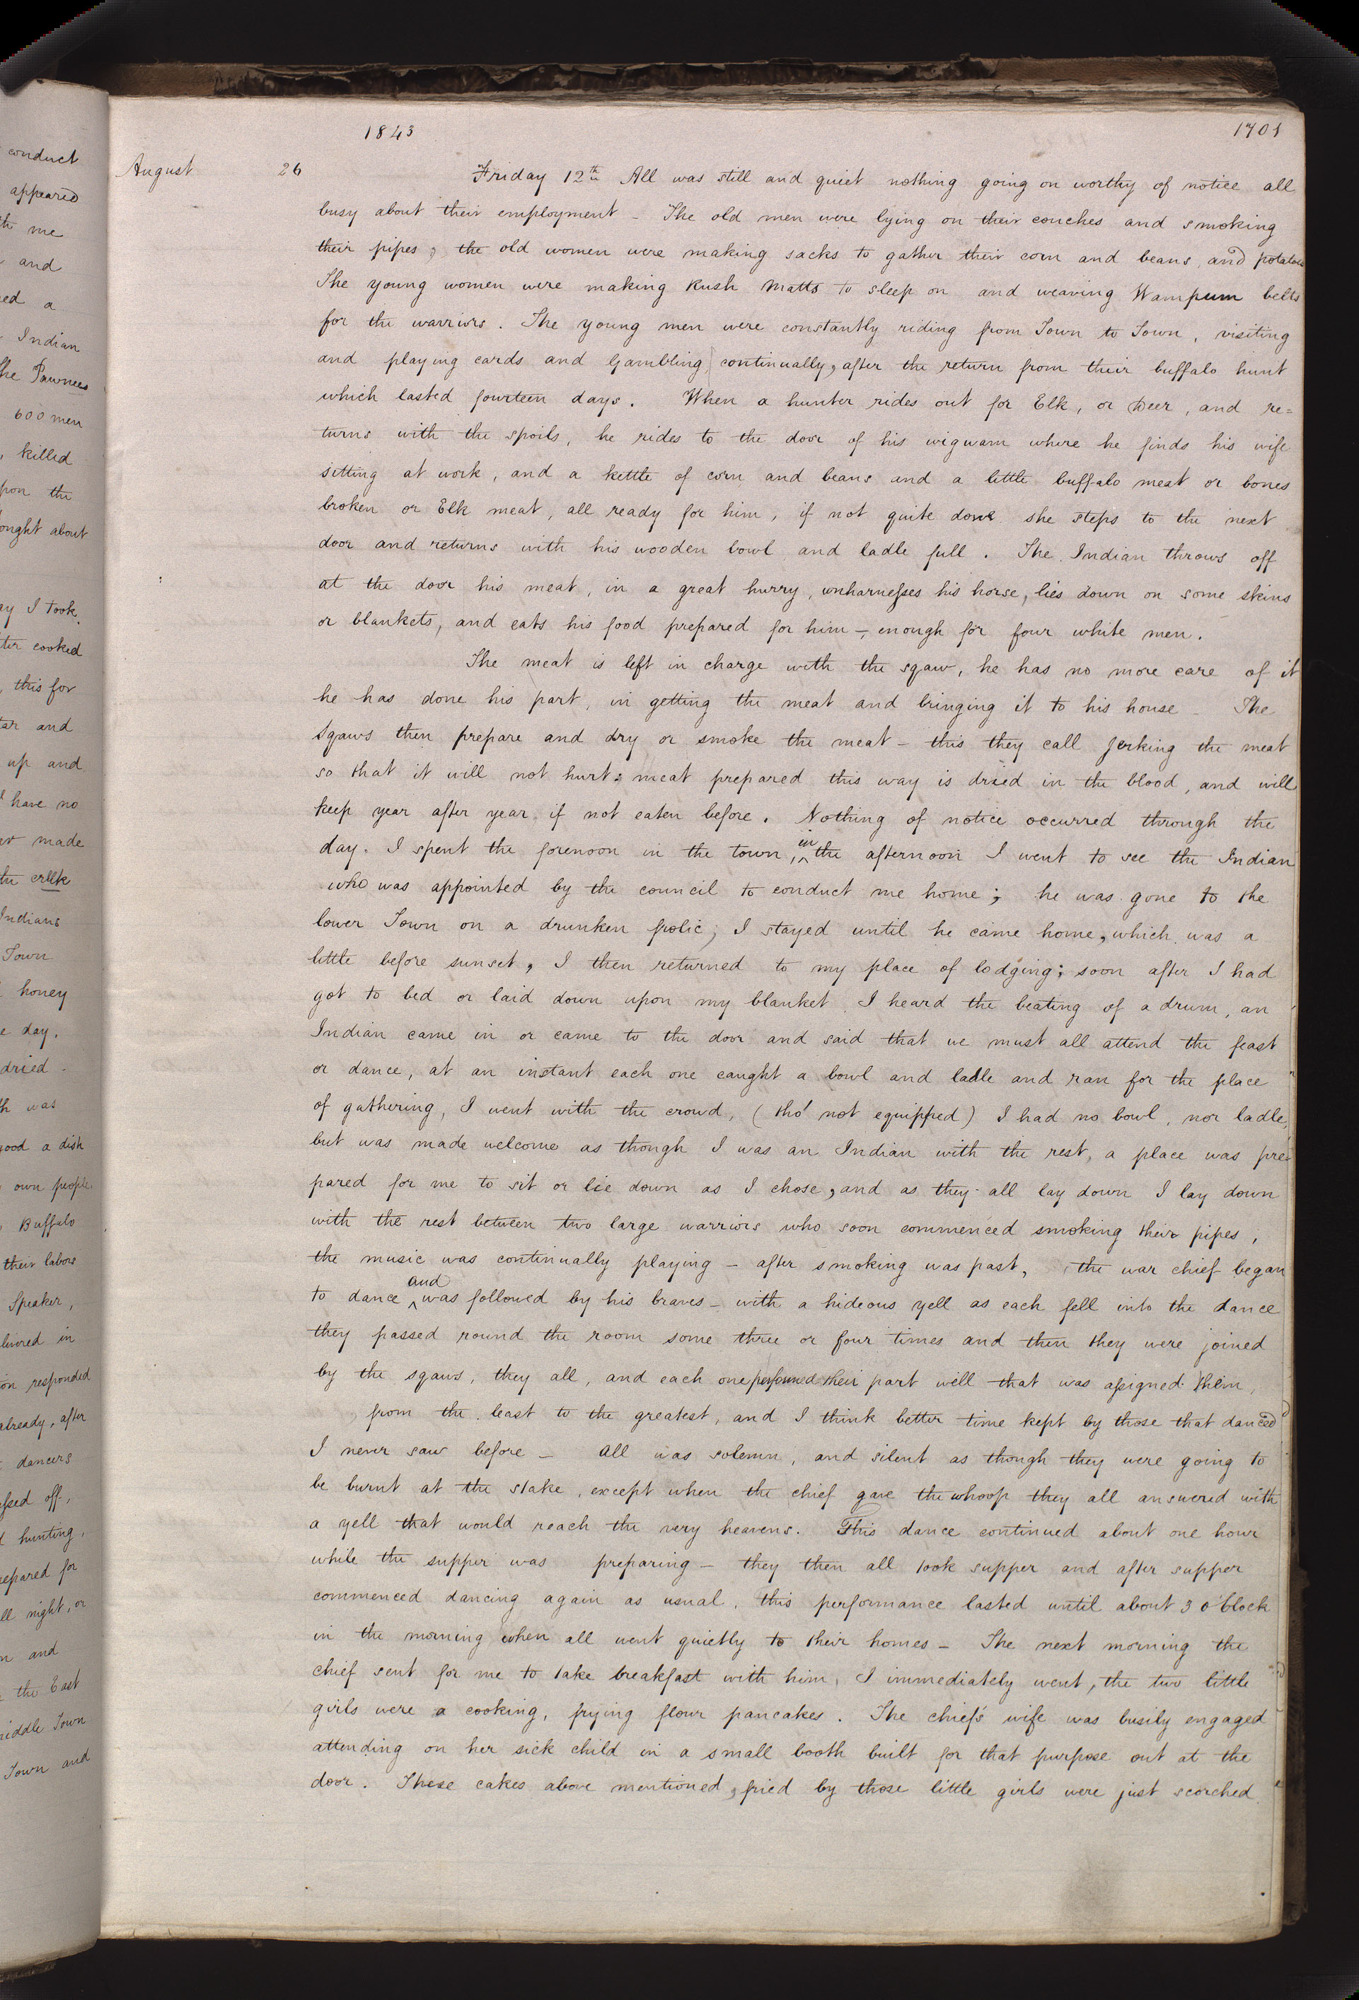 conduct
appeared
me
and
a
Indian
The Pawnees
600 men
killed
upon the
about
I took
cooked
this for
and
up and
I have no
made
the creek
Indians
Town
honey
day.
dried -
was
good a dish
own people
Buffalo
their labors
Speaker,
in
responded
already, after
dancers
off,
hunting,
prepared for
all night, or
and
the East
middle Town
Town and
1843
1701
August 26 Friday 12th All was still and quiet nothing going on worthy of notice all
busy about their employment - The old men were lying on their couches and smoking
their pipes, the old women were making sacks to gather their corn and beans, and potatoes
The young women were making Rush Matts to sleep on and weaving Wampum belts
for the warriors. The young men were constantly riding from Town to Town, visiting
and playing cards and Gambling continually, after the return from their buffalo hunt
which lasted fourteen days. When a hunter rides out for Elk, or Deer, and re=
turns with the spoils, he rides to the door of his wigwam where he finds his wife
sitting at work, and a kettle of corn and beans and a little buffalo meat or bones
broken or Elk meat, all ready for him, if not quite done she steps to the next
door and returns with his wooden bowl and ladle full. The Indian throws off
at the door his meat, in a great hurry, unharnesses his horse, lies down on some skins
or blankets, and eats his food prepared for him -, enough for four white men.
The meat is left in charge with the sqaw, he has no more care of it
he has done his part, in getting the meat and bringing it to his house - The
Sqaws then prepare and dry or smoke the meat - this they call jerking the meat
so that it will not hurt; meat prepared this way is dried in the blood, and will
keep year after year if not eaten before. Nothing of notice occurred through the
day. I spent the forenoon in the town, in the afternoon I went to see the Indian
who was appointed by the council to conduct me home; he was gone to the
lower Town on a drunken frolic; I stayed until he came home, which was a
little before sunset, I then returned to my place of lodging; soon after I had
got to bed or laid down upon my blanket I heard the beating of a drum, an
Indian came in or came to the door and said that we must all attend the feast
or dance, at an instant each one caught a bowl and ladle and ran for the place
of gathering, I went with the crowd, (tho' not equipped) I had no bowl, nor ladle,
but was made welcome as though I was an Indian with the rest, a place was pre
pared for me to sit or lie down as I chose, and as they all lay down I lay down
with the rest between two large warriors who soon commenced smoking their pipes,
the music was continually playing - after smoking was past, the war chief began
to dance and was followed by his braves - with a hideous yell as each fell into the dance
they passed round the room some three or four times and then they were joined
by the sqaws, they all, and each one performed their part well that was assigned them,
from the least to the greatest, and I think better time kept by those that danced
I never saw before - All was solemn, and silent as though they were going to
be burnt at the stake, except when the chief gave the whoop they all answered with
a yell that would reach the very heavens. This dance continued about one hour
while the supper was preparing - they then all took supper and after supper
commenced dancing again as usual, this performance lasted until about 3 o'Clock
in the morning when all went quietly to their homes - The next morning the
chief sent for me to take breakfast with him, I immediately went, the two little
girls were a cooking, frying flour pancakes. The chief's wife was busily engaged
attending on her sick child in a small booth built for that purpose out at the
door. These cakes above mentioned, fried by those little girls were just scorched